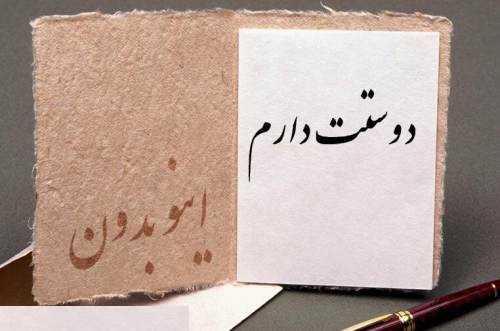 دوستت دارم
اینو بدون